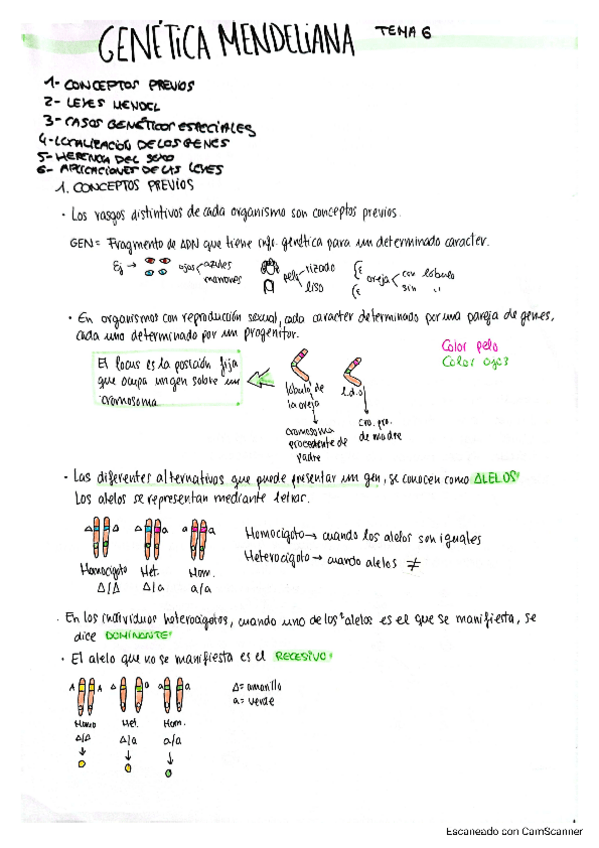 GENÉTICA MENDELIANA TEMA 6
1- CONCEPTOS PREVIOS
2- LEYES MENDEL
3- CASOS GENÉTICOS ESPECIALES
4- LOCALIZACIÓN DE LOS GENES
5- HERENCIA DEL SEXO
6- APLICACIONES DE LAS LEYES
1. CONCEPTOS PREVIOS
· Los rasgos distintivos de cada organismo son conceptos previos.
GEN= Fragmento de ADN que tiene info. genética para un determinado caracter.
Ej → ojos azules marrones pelo rizado liso oreja con lóbulo sin "
· En organismos con reproducción sexual, cada caracter determinado por una pareja de genes,
cada uno determinado por un progenitor.
Color pelo
Color ojos
El locus es la posición fija
que ocupa un gen sobre un
cromosoma
lóbulo de
la oreja
l.d.o
cromosoma
procedente de
padre
cro. pro.
de madre
· Las diferentes alternativas que puede presentar un gen, se conocen como ALELOS
Los alelos se representan mediante letras.
A A A a a a
Homocigoto Het. Hom.
A/A A/a a/a
Homocigoto → cuando los alelos son iguales
Heterocigoto → cuando alelos ≠
· En los individuos heterocigotos, cuando uno de los 2 alelos es el que se manifiesta, se
dice DOMINANTE
· El alelo que no se manifiesta es el RECESIVO
A A A a a a
Homo Het. Hom.
A/A A/a a/a
A= amarillo
a= verde
Escaneado con CamScanner